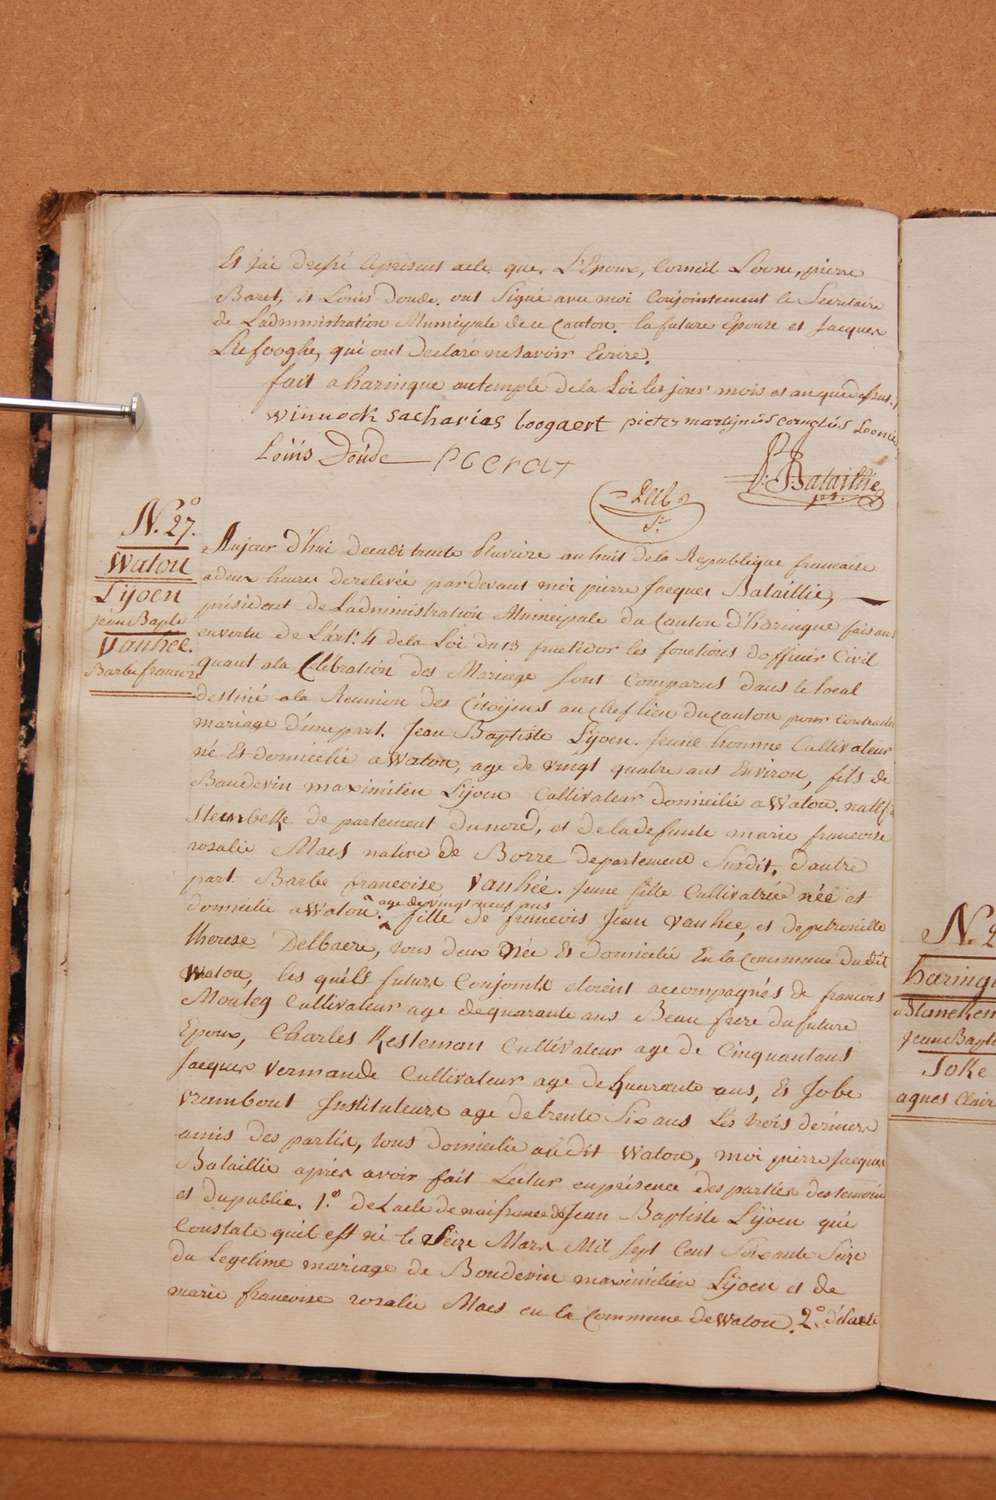 Et j'ai dressé leprésent acte que L'Epoux, Corneil Leene, pierre
Baret, et Louis Doude, ont Signé avec moi Conjointement le Secretaire
de Ladministration Municipale de ce Canton. la future Epouse et Jacques
Liefooghe, qui ont Declaré ne savoir Ecrire.
fait a haringue au temple de la Loi les jour mois et an que dessus.
winnock sacharias boogaert pieter martijnus cornelis Leenie
Loüis Doude P Baret
P: J. Bataillie
pt.
N.o 27.
Watou
Lijoen
Jean Bapte
Vanhée.
Barbe francoise
Aujour d'hui decadi trente Pluviose an huit de la Republique francaise
a deux heures de relevée pardevant moi pierre Jacques Bataillie,
président de Ladministration Municipale du Canton d'haringue faisant
en vertu de L'art. 4 de la Loi du 13 fructidor les fonctions d'officier Civil
quant a la Célébration des Mariage sont Comparus dans le local
destiné a la Reunion des Citoijens au chef lieu du canton pour contracter
mariage d'une part. Jean Baptiste Lijoen. Jeune homme Cultivateur
né Et domicilié a Watou, age de vingt quatre ans Environ, fils de
Baudevin maximilien Lijoen Cultivateur domicilié a Watou. natif de
Steenbeke de partement du nord, et de la defunte marie francoise
rosalie Maes native de Borre departement Susdit, d'autre
part Barbe francoise Vanhée. Jeune fille Cultivatrice née et
domicilie a Watou. age de vingt neuf ans fille de francois Jean Vanhee, et de petronille
therese Delbaere, tous deux Née Et Domicilié En la Commune dudit
Watou, les quels futurs Conjoints etoient accompagnés de francois
Mouleq Cultivateur age de quarante ans Beau frere du future
Epoux, Charles Kesteman Cultivateur age de Cinquantans
Jacques Vermande Cultivateur age de quarante ans, Et Jobe
Vrambout Instituteur age de trente Six ans Les trois derniers
amis des partis, tous domicilié au dit Watou, moi pierre Jacques
Bataillie aprés avoir fait Lectur en présence des parties des temoins
et du publie. 1.o de L'acte de naissance de Jean Baptiste Lijoen qui
Constate qu'il est né le Seize Mars Mil sept Cent Soixante Seize
du Legetime mariage de Boudevin maximilien Lijoen et de
marie francoise rosalie Maes en la Commune de Watou. 2.o de l'acte
N. 2
haring
Jean Bapt
Joke
agnes Clair